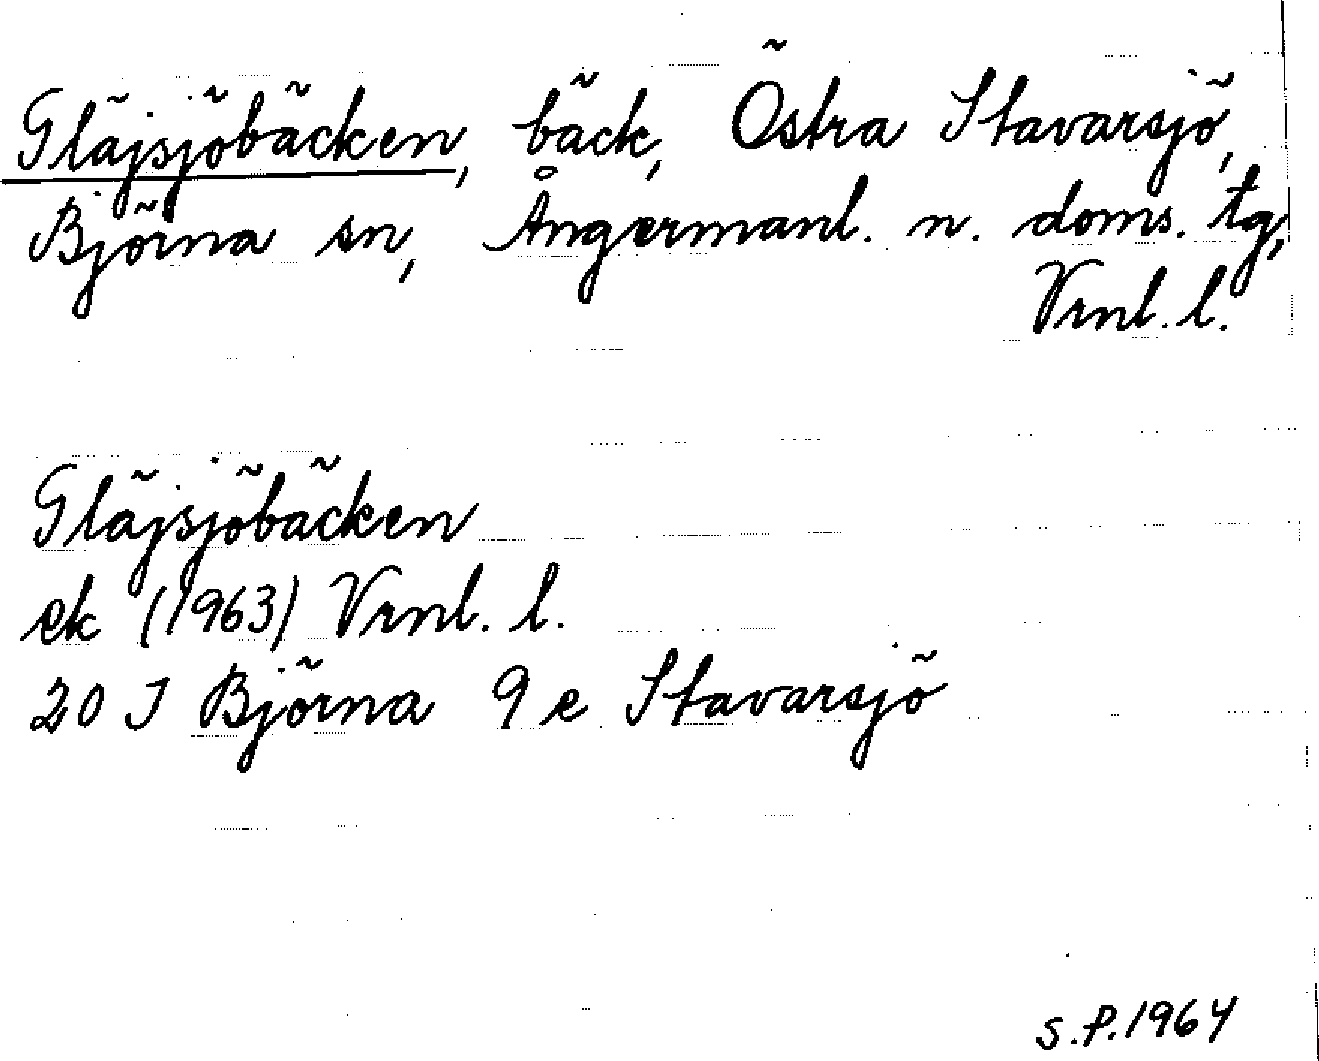 Gläjsjöbäcken, bäck, Östra Stavarsjö,
Björna sn, Ångermanl. n. doms. tg,
Vrnl. l.
Gläjsjöbäcken
ek (1963) Vrnl. l.
20 J Björna 9 e Stavarsjö
S.P. 1964